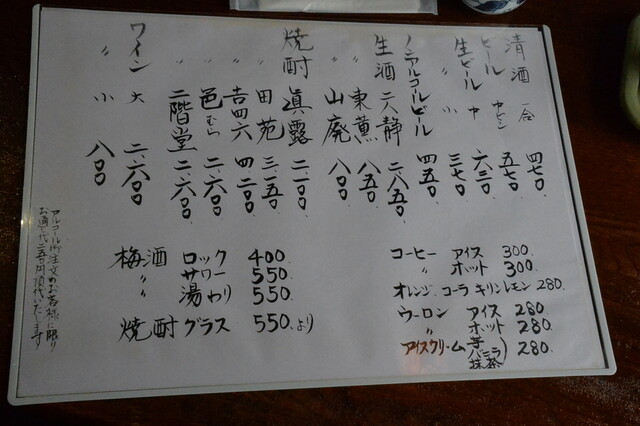 清酒 一合 四七〇
ビール 中ビン 五七〇
生ビール 中 六三〇
〃 小 三七〇
ノンアルコールビール 四五〇
生酒 天静 二、八五〇
〃 東薫 八五〇
〃 山廃 八〇〇
焼酎 眞露 二、一〇〇
田苑 三、一五〇
吉四六 四、二〇〇
邑むら 二、六〇〇
二階堂 二、六〇〇
ワイン 大 二、六〇〇
〃 小 八〇〇
コーヒー アイス 300
〃 ホット 300
オレンジ. コーラ キリンレモン 280.
ウーロン アイス 280
〃 ホット 280
アイスクリーム バニラ 抹茶 280.
梅酒 ロック 400.
〃 サワー 550.
〃 湯わり 550
焼酎 グラス 550.より
アルコール御注文のお客様に限り
お通し代二五〇円頂いたします